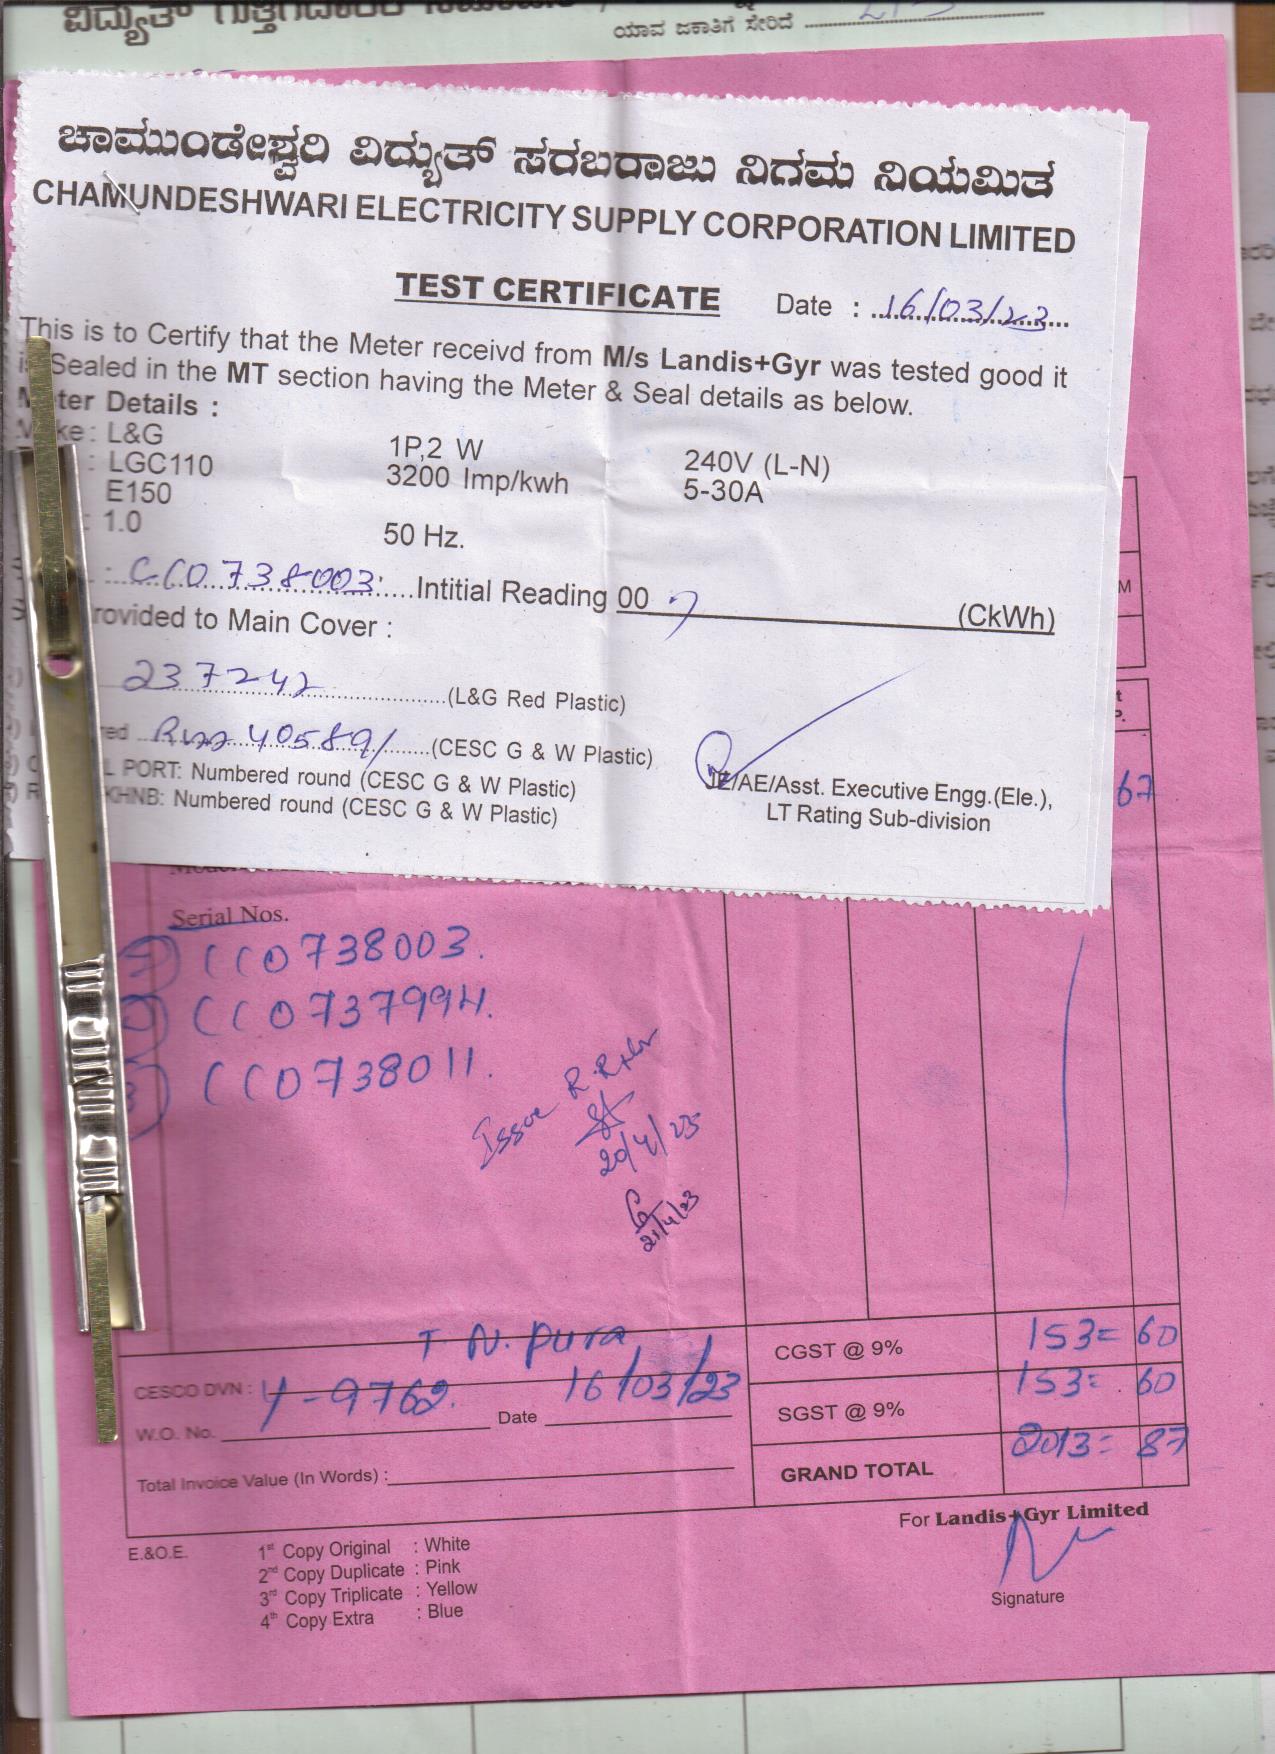 ಯಾವ ಜಕಾತಿಗೆ ಸೇರಿದೆ
ಚಾಮುಂಡೇಶ್ವರಿ ವಿದ್ಯುತ್ ಸರಬರಾಜು ನಿಗಮ ನಿಯಮಿತ
CHAMUNDESHWARI ELECTRICITY SUPPLY CORPORATION LIMITED
TEST CERTIFICATE Date : 16/03/23
This is to Certify that the Meter receivd from M/s Landis+Gyr was tested good it
Sealed in the MT section having the Meter & Seal details as below.
Meter Details :
: L&G 1P,2 W 240V (L-N)
: LGC110 3200 Imp/kwh 5-30A
E150
: 1.0 50 Hz.
: CC0738003 Intitial Reading 00 7 (CkWh)
rovided to Main Cover :
237242 (L&G Red Plastic)
red 405891 (CESC G & W Plastic)
L PORT: Numbered round (CESC G & W Plastic)
KHNB: Numbered round (CESC G & W Plastic)
JE/AE/Asst. Executive Engg.(Ele.),
LT Rating Sub-division
67
Serial Nos.
CC0738003.
CC0737994.
CC0738011.
Issue
20/4/23
21/4/23
T N. Pura
CESCO DVN :
W.O. No. Y-9762. Date 16/03/23
Total Invoice Value (In Words) :
CGST @ 9% 153=60
SGST @ 9% 153=60
GRAND TOTAL 2013=87
For Landis+Gyr Limited
Signature
E.&O.E.
1st Copy Original : White
2nd Copy Duplicate : Pink
3rd Copy Triplicate : Yellow
4th Copy Extra : Blue